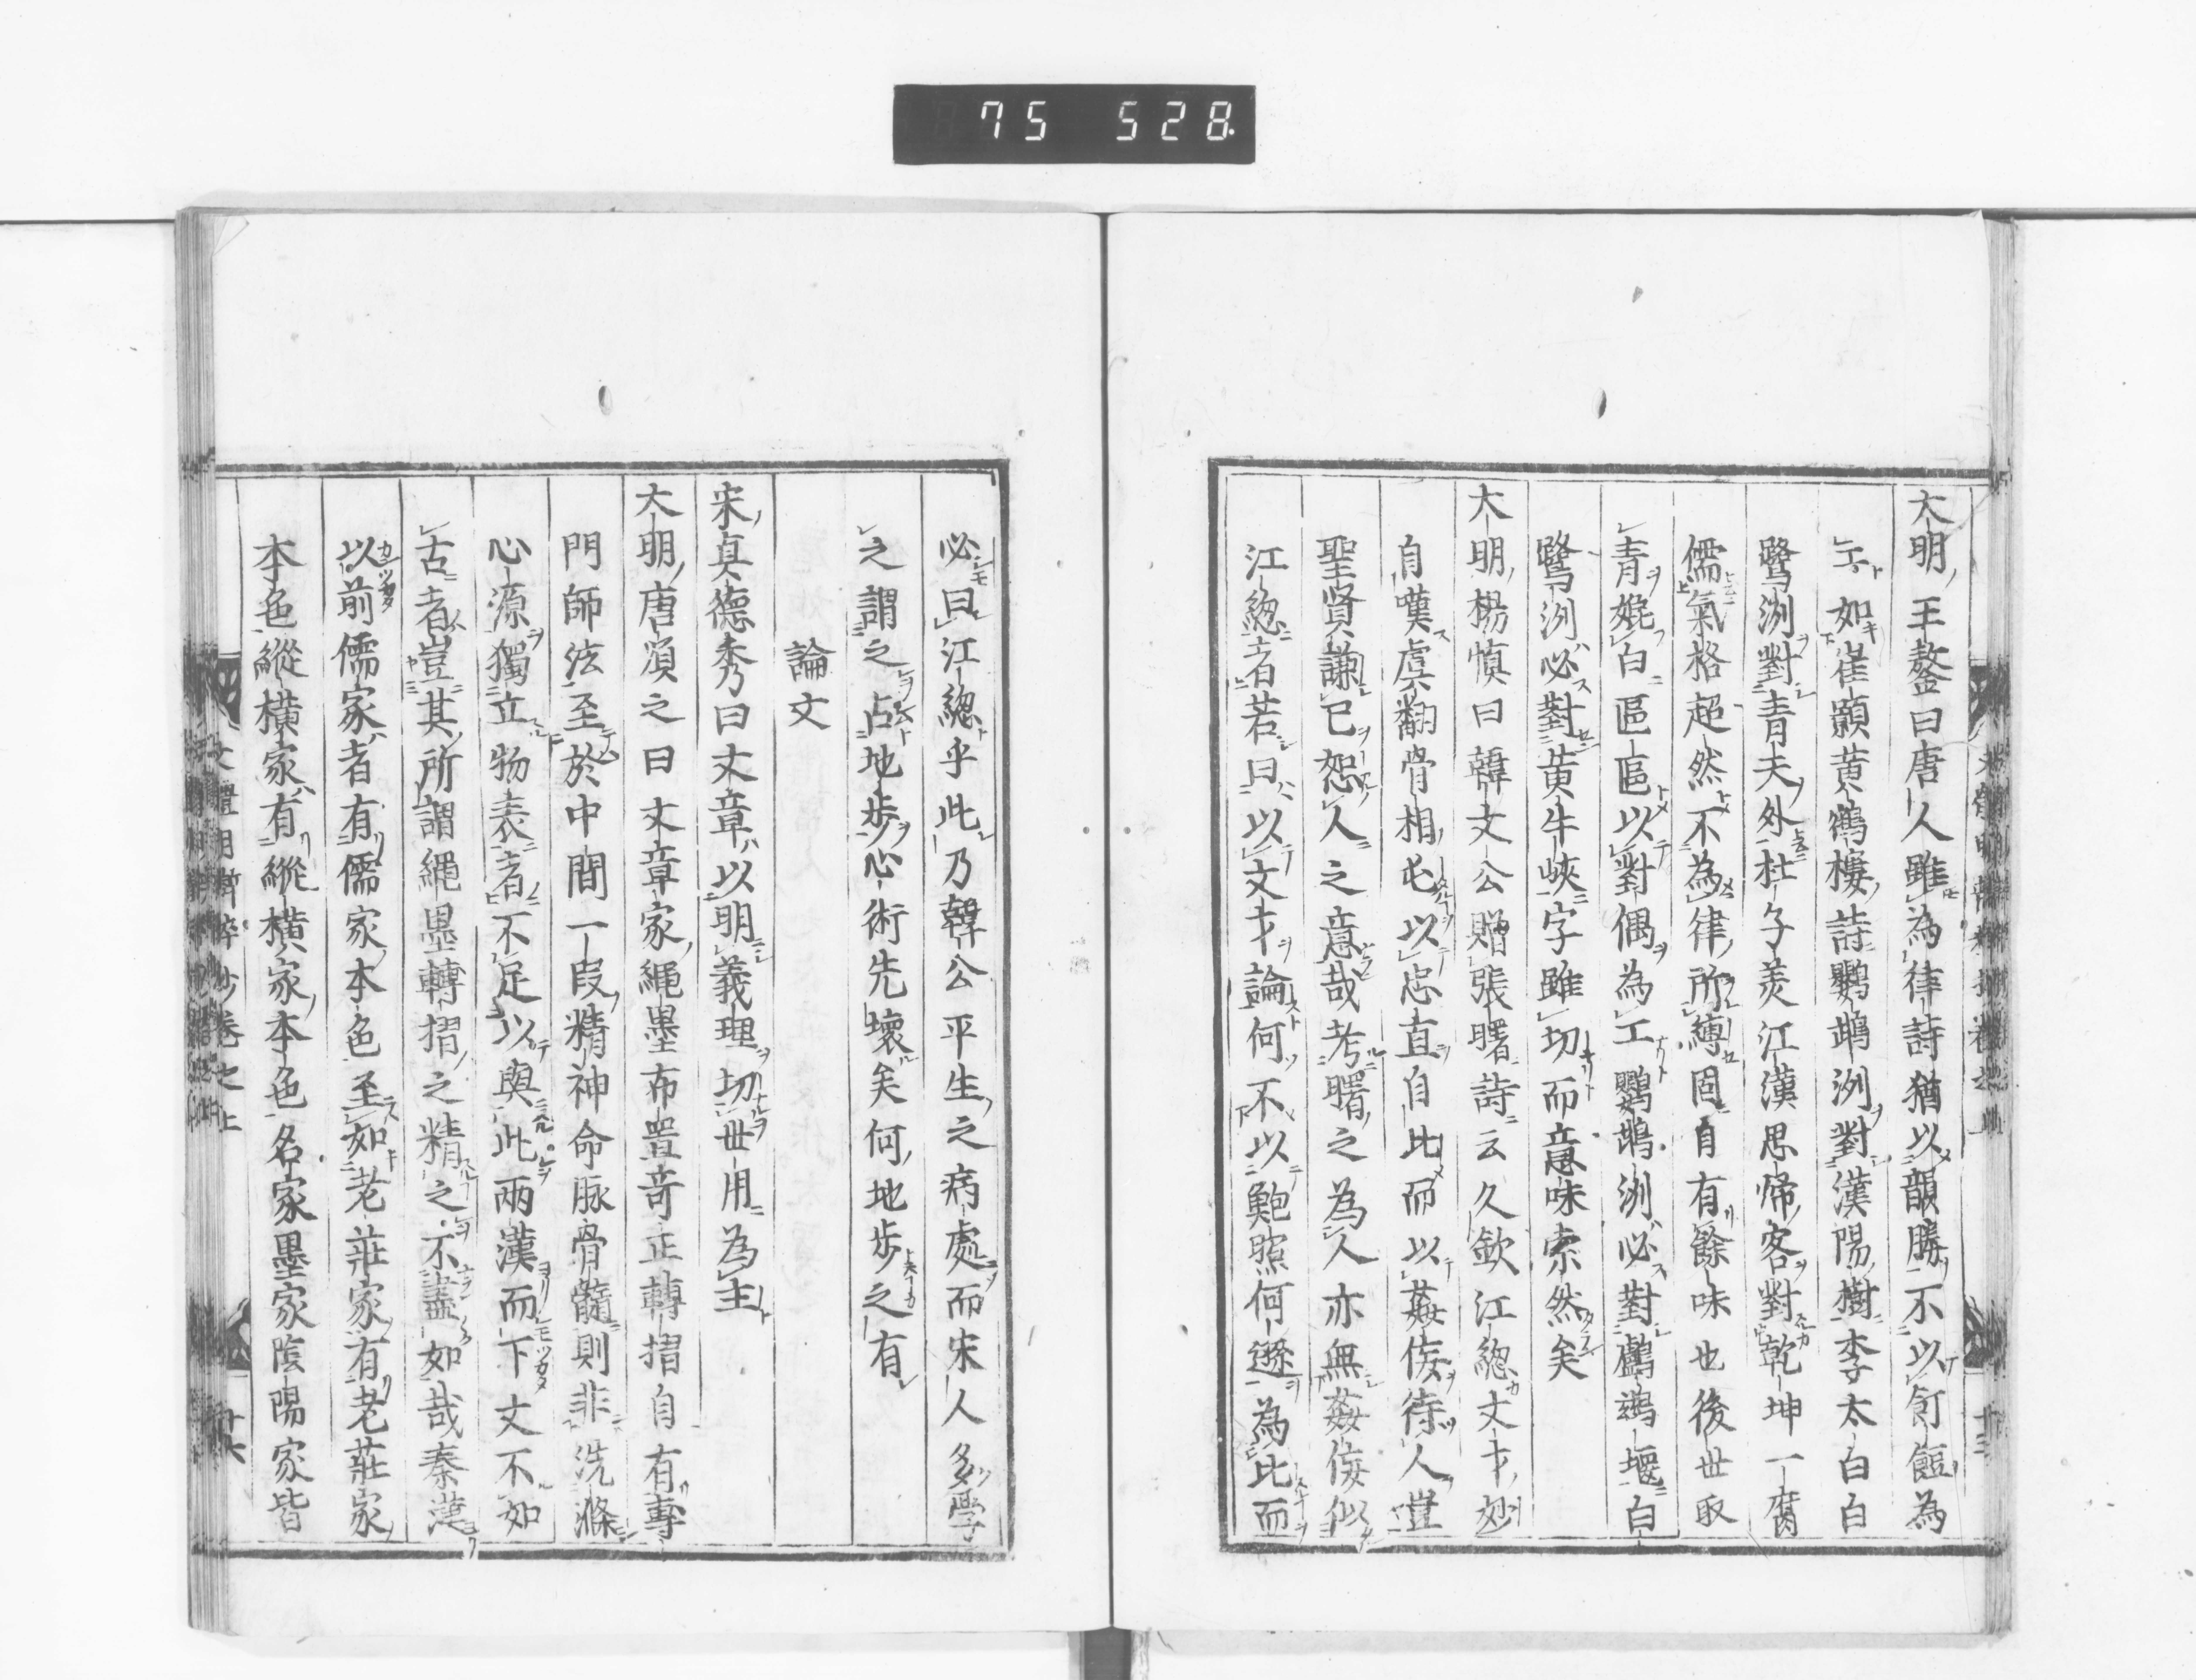 75 528
大明王鏊曰唐人雖為律詩猶以韻勝不以飣餖為
工如崔顥黄鶴樓詩鸚鵡洲對漢陽樹李太白白
鷺洲對青天外杜子美江漢思帰客對乾坤一腐
儒氣格超然不為律所縛固自有餘味也後世取
青媲白區區以對偶為工鸚鵡洲必對鸕鷀堰白
鷺洲必對黄牛峡字雖切而意味索然矣
大明楊慎曰韓文公贈張曙詩云久欽江總文才妙
自嘆虞翻骨相屯以忠直自比而以姦佞待人豈
聖賢謙己恕人之意哉考曙之為人亦無姦佞似
江總者若曰以文才論何不以鮑照何遜為比而
必曰江總乎此乃韓公平生之病處而宋人多學
之謂之占地歩心術先壊矣何地歩之有
論文
宋真德秀曰文章以明義理切世用為主
大明唐順之曰文章家縄墨布置竒正轉摺自有專
門師法至於中間一段精神命脉骨髓則非洗滌
心源獨立物表者不足以與此兩漢而下文不如
古者豈其所謂縄墨轉摺之精之不盡如哉秦漢
以前儒家者有儒家本色至如老莊家有老莊家
本色縱横家有縱横家本色名家墨家陰陽家皆